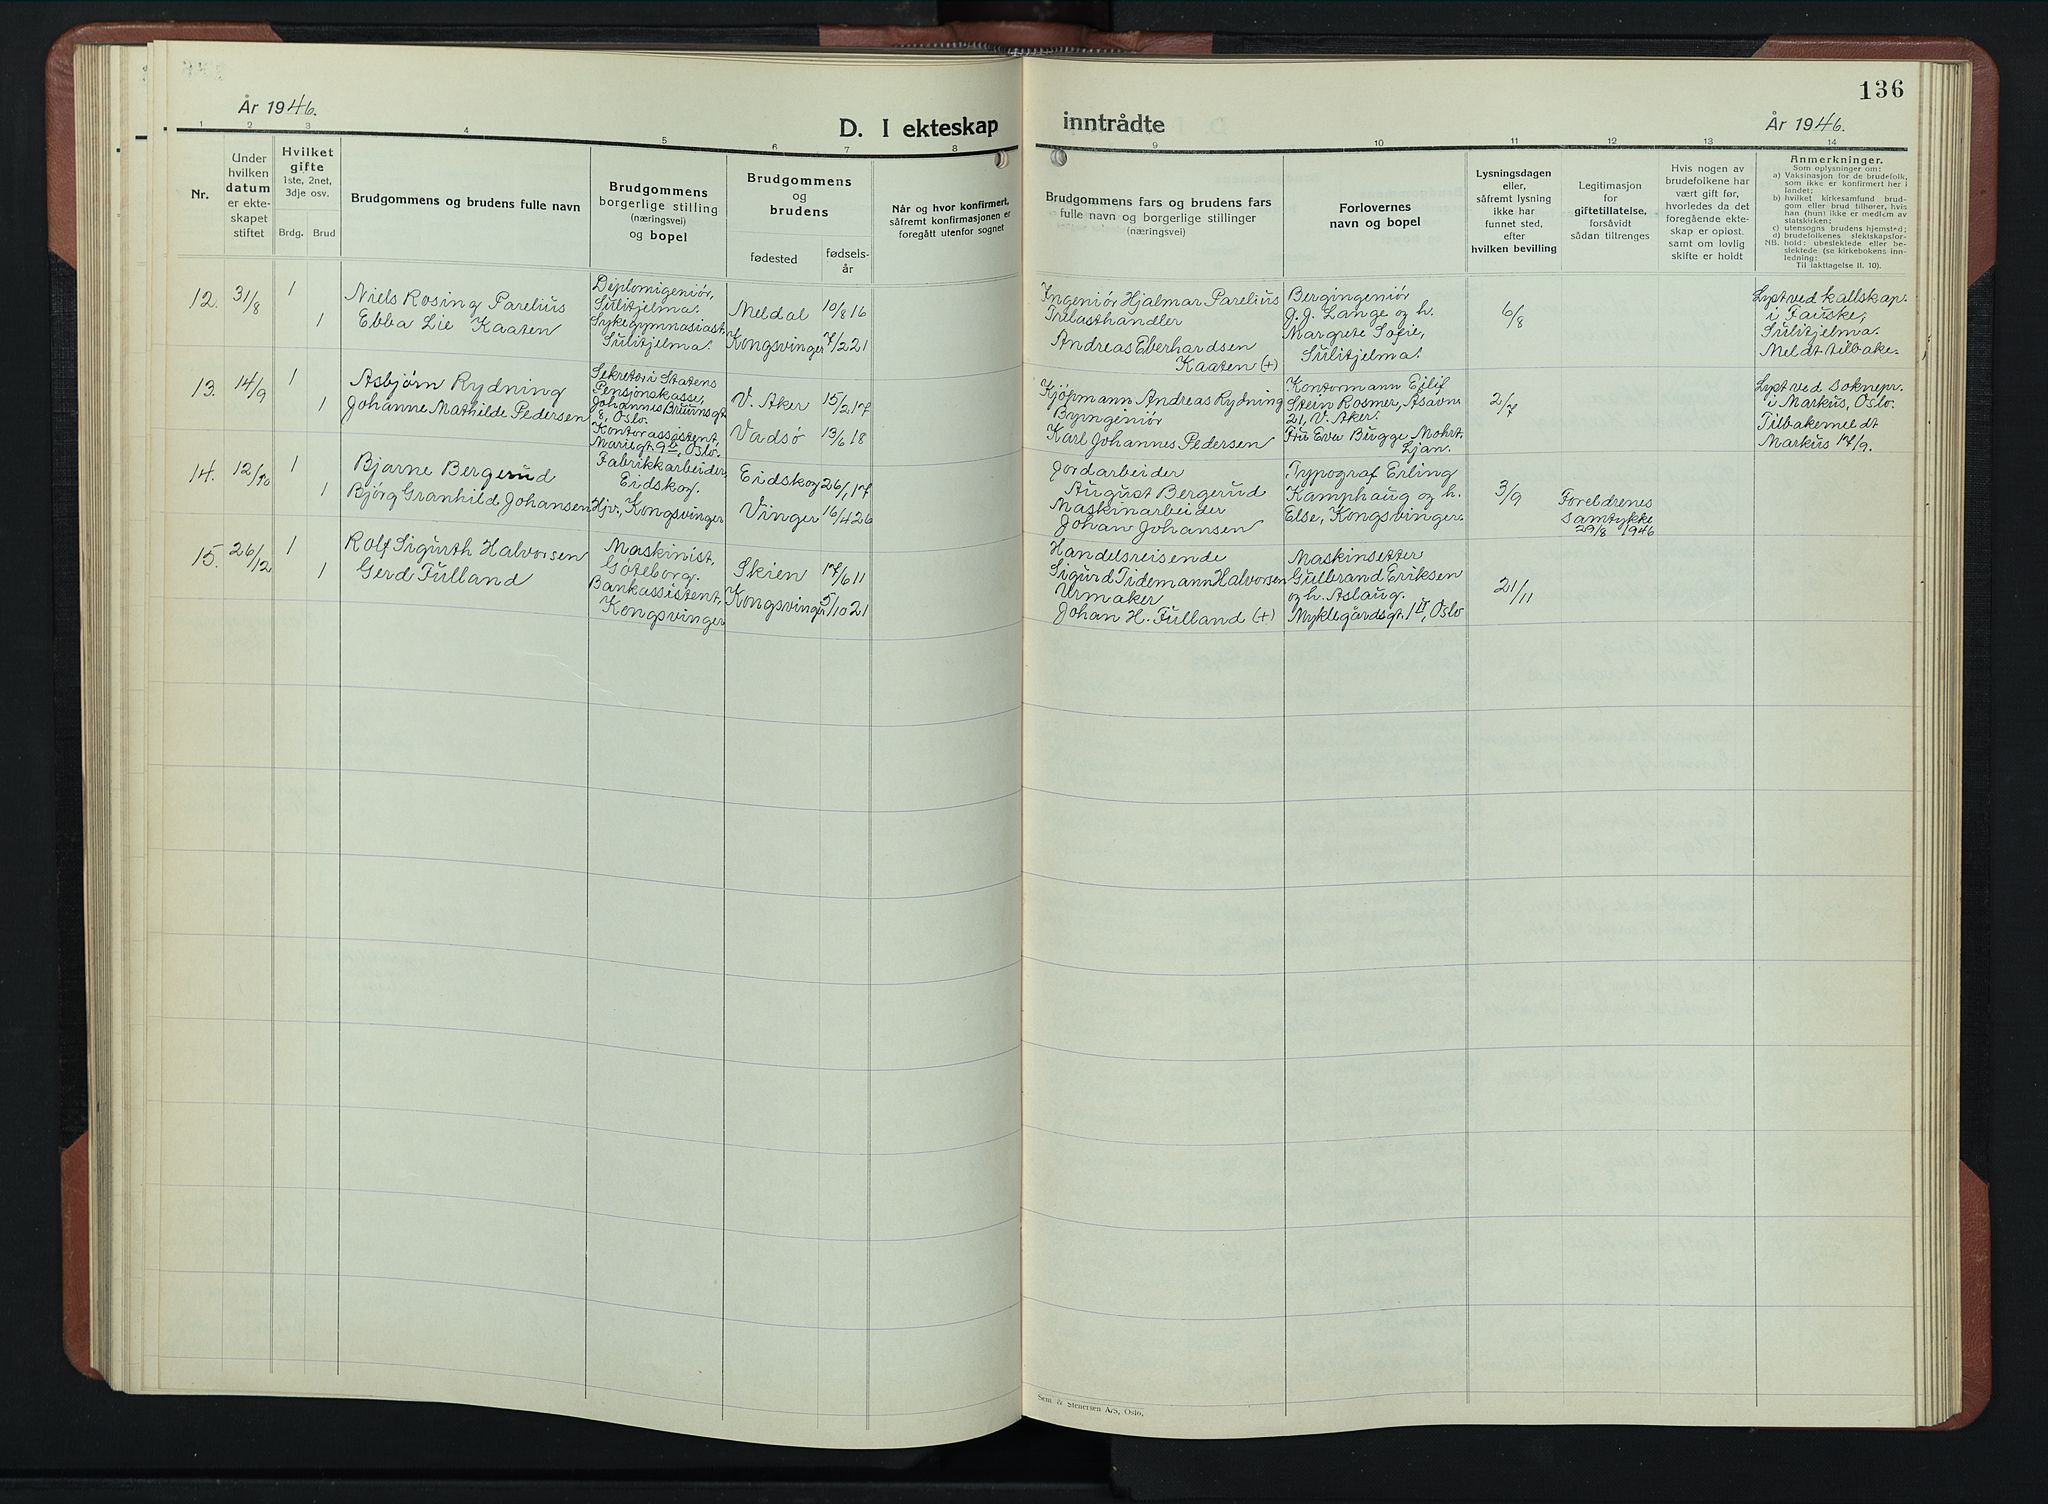 136
År 1946.
D. I ekteskap
inntrådte
År 1946.
1 2 3 4 5 6 7 8 9 10 11 12 13 14
Nr.
Under
hvilken
datum
er ekte-
skapet
stiftet
Hvilket
gifte
1ste, 2net,
3dje osv.
Brdg. Brud
Brudgommens og brudens fulle navn
Brudgommens
borgerlige stilling
(næringsvei)
og bopel
Brudgommens
og
brudens
fødested
fødsels-
år
Når og hvor konfirmert,
såfremt konfirmasjonen er
foregått utenfor sognet
Brudgommens fars og brudens fars
fulle navn og borgerlige stillinger
(næringsvei)
Forlovernes
navn og bopel
Lysningsdagen
eller,
såfremt lysning
ikke har
funnet sted,
efter
hvilken bevilling
Legitimasjon
for
giftetillatelse,
forsåvidt
sådan tiltrenges
Hvis nogen av
brudefolkene har
vært gift før,
hvorledes da det
foregående ekte-
skap er opløst.
samt om lovlig
skifte er holdt
Anmerkninger.
Som oplysninger om:
a) Vaksinasjon for de brudefolk,
som ikke er konfirmert her i
landet;
b) hvilket kirkesamfund brud-
gom eller brud tilhører, hvis
han (hun) ikke er medlem av
statskirken;
c) utensogns brudens hjemsted;
d) brudefolkenes slektskapsfor-
NB. hold: ubeslektede eller be-
slektede (se kirkebokens inn-
ledning:
Til iakttagelse II. 10).
12. 31/8 1
1
Niels Rosing Parelius
Ebba Lie Kaaten
Diplomigeniör,
Sulitjelma.
Sykegymnasiast,
Sulitjelma.
Meldal 10/8 16
Kongsvinger 7/2 21
Ingeniör Hjalmar Parelius
Trelasthandler
Andreas Eberhardsen
Kaaten (+)
Bergingeniör
J. J. Lange og h.
Margrete Sofie,
Sulitjelma.
6/8
Lyst ved kallskap.
i Fauske,
Sulitjelma.
Meldt tilbake.
13. 14/9 1
1
Asbjørn Rydning
Johanne Mathilde Pedersen
Sekretær i Statens
Pensjonskasse,
Johannes Bruunsgt.
8, Oslo.
Kontorassistent,
Mariegt. 9 II, Oslo.
V. Aker 15/2 17
Vadsø 13/6 18
Kjöpmann Andreas Rydning
Byingeniör
Karl Johannes Pedersen
Kontormann Eilif
Stein Rosmer, Asavn.
21, V. Aker.
Fru Eva Bugge Mohrt,
Ljan.
2/7
Lyst ved soknepr.
i Markus, Oslo.
Tilbakemeldt
Markus 17/9.
14. 12/10 1
1
Bjarne Bergerud
Bjørg Granhild Johansen
Fabrikkarbeider,
Eidskog.
Hjv., Kongsvinger
Eidskog 26/1 17
Vinger 16/4 26
Jordarbeider
August Bergerud
Maskinarbeider
Johan Johansen
Typograf Erling
Kamphaug og h.
Else, Kongsvinger.
3/9
Foreldrenes
samtykke
29/8 1946
15. 26/12 1
1
Rolf Sigurth Halvorsen
Gerd Fulland
Maskinist,
Göteborg.
Bankassistent,
Kongsvinger
Skien 17/6 11
Kongsvinger 5/10 21
Handelsreisende
Sigurd Tidemann Halvorsen
Urmaker
Johan H. Fulland (+)
Maskinsetter
Gulbrand Eriksen
og h. Aslaug.
Myklegårdsgt. 1 II, Oslo
21/11
Sem & Stenersen A/S, Oslo.